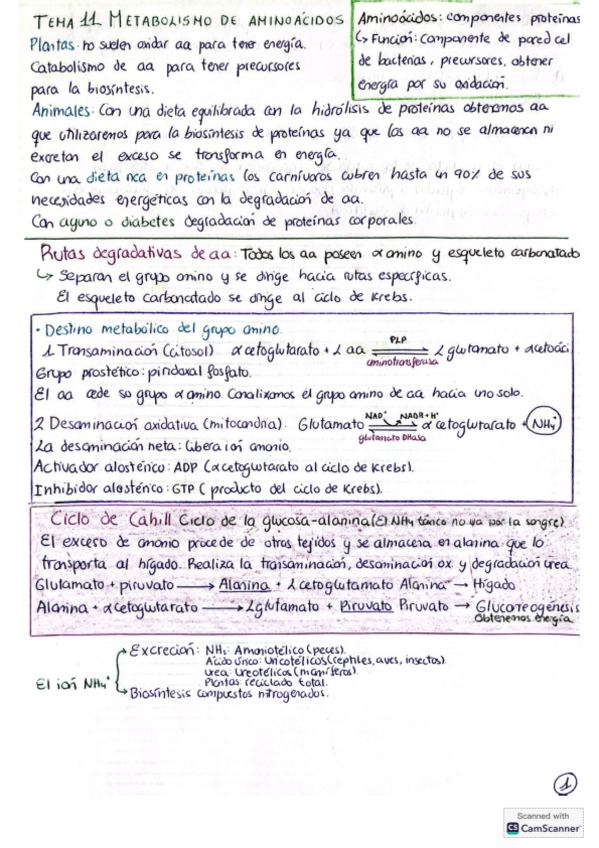 TEMA 11. METABOLISMO DE AMINOÁCIDOS
Plantas: no suelen oxidar aa para tener energía.
Catabolismo de aa para tener precursores
para la biosíntesis.
Aminoácidos: componentes proteinas
↳ Función: Componente de pared cel
de bacterias, precursores, obtener
energía por su oxidación.
Animales: Con una dieta equilibrada con la hidrólisis de proteínas obtenemos aa
que utilizaremos para la biosíntesis de proteínas ya que los aa no se almacenan ni
excretan el exceso se transforma en energía.
Con una dieta rica en proteínas los carnívoros cubren hasta un 90% de sus
necesidades energéticas con la degradación de aa.
Con ayuno o diabetes degradación de proteínas corporales.
Rutas degradativas de aa: Todos los aa poseen α amino y esqueleto carbonatado
↳ Separan el grupo amino y se dirige hacia rutas específicas.
El esqueleto carbonatado se dirige al ciclo de Krebs.
· Destino metabólico del grupo amino.
1. Transaminación (citosol) α cetoglutarato + L aa PLP aminotransferasa L glutamato + α cetoáci
Grupo prostético: piridoxal fosfato.
El aa cede su grupo α amino. Canalizamos el grupo amino de aa hacia uno solo.
2 Desaminación oxidativa (mitocondria). Glutamato NAD⁺ NADH + H⁺ glutamato DHasa α cetoglutarato + NH₄⁺
La desaminación neta: libera ion amonio.
Activador alostérico: ADP (α cetoglutarato al ciclo de Krebs).
Inhibidor alostérico: GTP (producto del ciclo de Krebs).
Ciclo de Cahill Ciclo de la glucosa-alanina (El NH₄ tóxico no va por la sangre)
El exceso de amonio procede de otros tejidos y se almacena en alanina que lo
transporta al hígado. Realiza la transaminación, desaminación ox y degradación urea
Glutamato + piruvato → Alanina + L cetoglutamato Alanina → Hígado
Alanina + α cetoglutarato → L glutamato + Piruvato Piruvato → Glucoreogénesis
Obtenemos energía
El ión NH₄⁺
Excreción: NH₄: Amoniotélico (peces).
Ácido úrico: Uricotélicos (reptiles, aves, insectos)
Urea: Ureotélicos (mamíferos).
Plantas: reciclado total.
Biosíntesis compuestos nitrogenados.
1
Scanned with
CS CamScanner